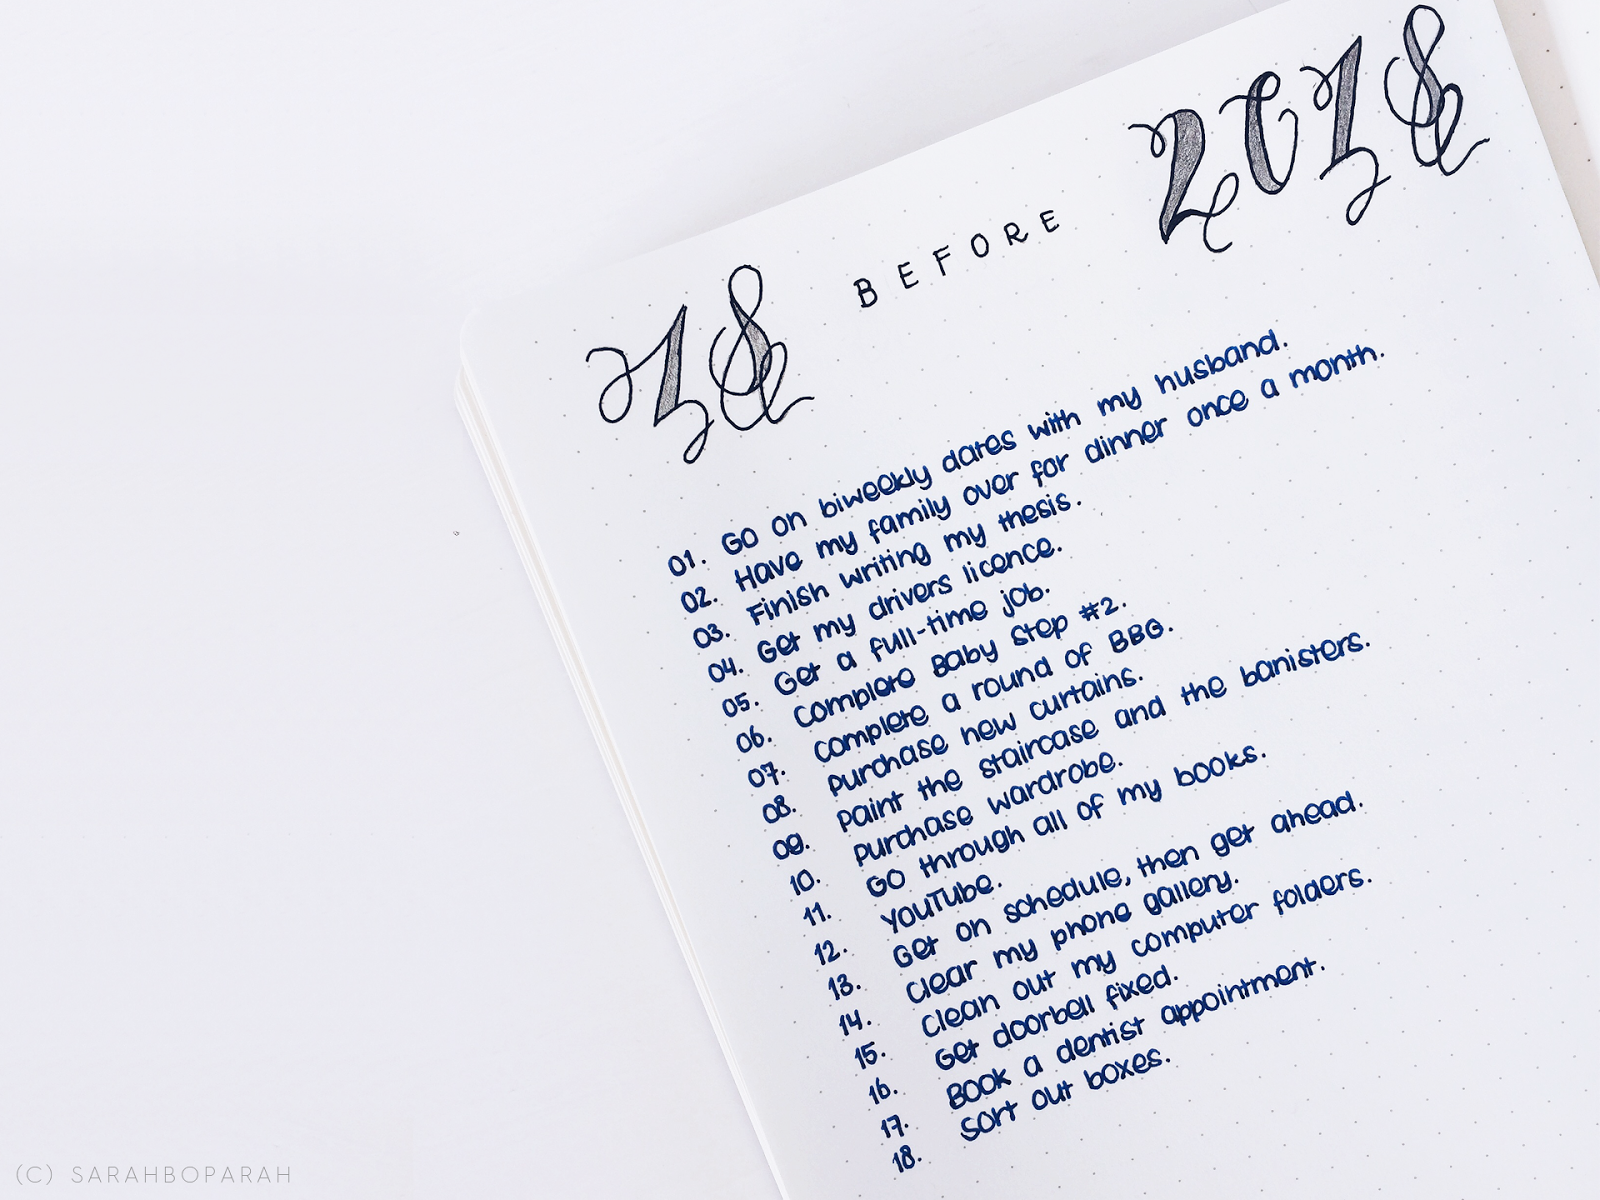 18 BEFORE 2018
01. Go on biweekly dates with my husband.
02. Have my family over for dinner once a month.
03. Finish writing my thesis.
04. Get my drivers licence.
05. Get a full-time job.
06. Complete Baby Step #2.
07. Complete a round of BBG.
08. Purchase new curtains.
09. Paint the staircase and the banisters.
10. Purchase wardrobe.
11. Go through all of my books.
12. YouTube.
13. Get on schedule, then get ahead.
14. Clear my phone gallery.
15. Clean out my computer folders.
16. Get doorbell fixed.
17. Book a dentist appointment.
18. Sort out boxes.
(C) SARAHBOPARAH